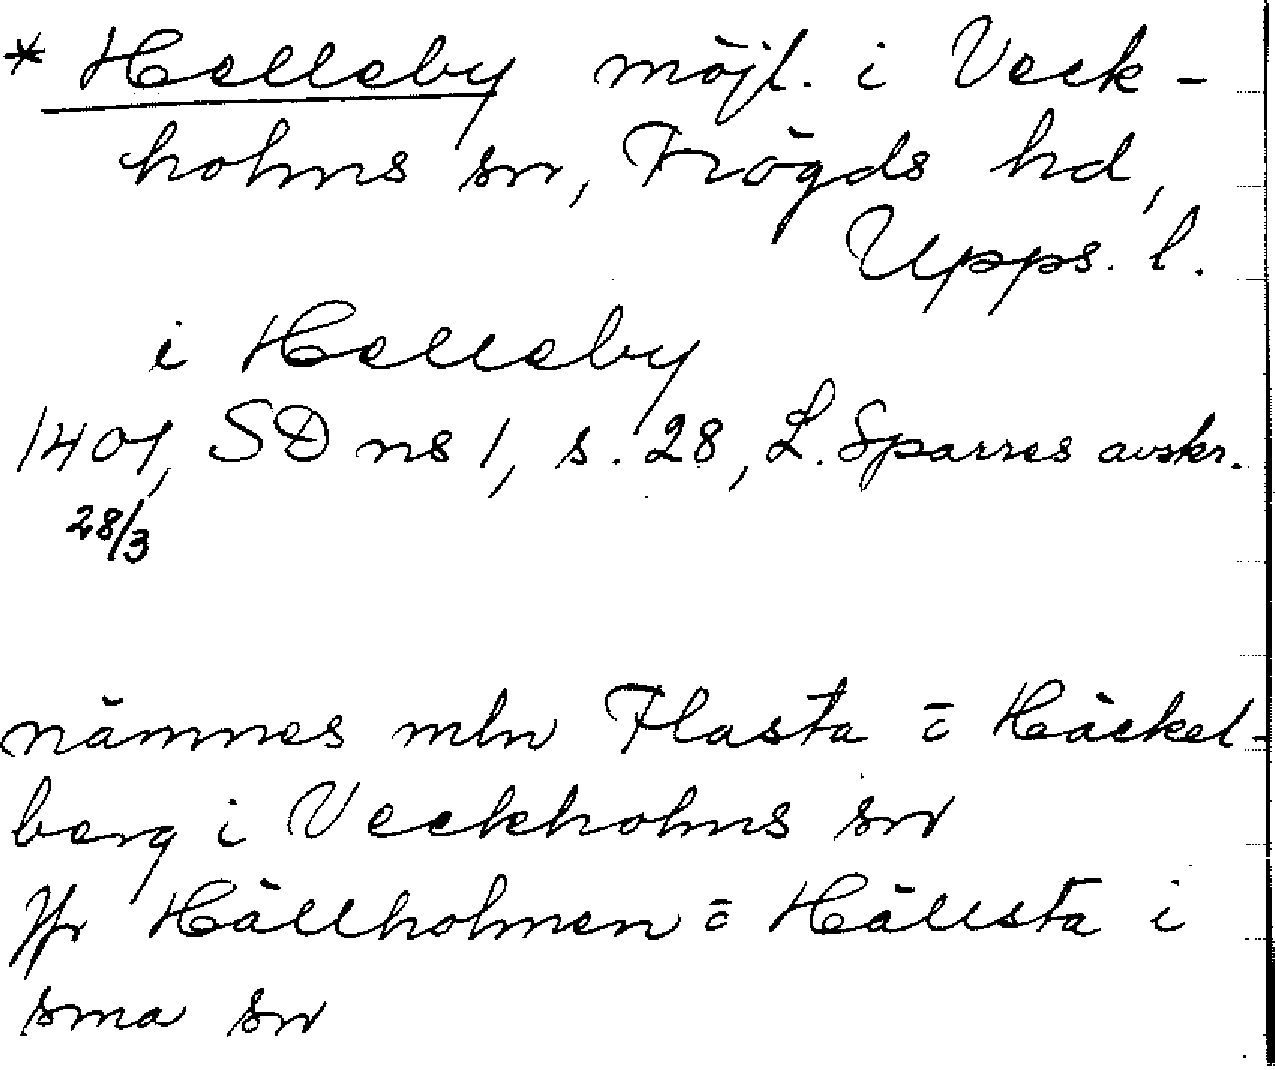 * Helleby möjl. i Veck-
holms sn, Trögds hd,
Upps. l.
i Helleby
1401, SD ns 1, s. 28, L. Sparres avskr.
28/3
nämnes mln Flasta o Häckel-
berg i Veckholms sn
Jfr Hällholmen o Hällsta i
sma sn